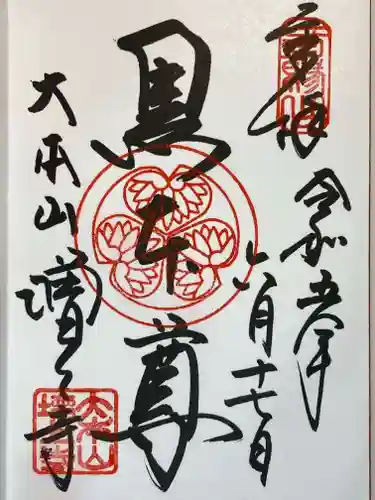 奉拝
令和五年
六月十七日
黒本尊
大本山
増上寺
大本山
増上寺